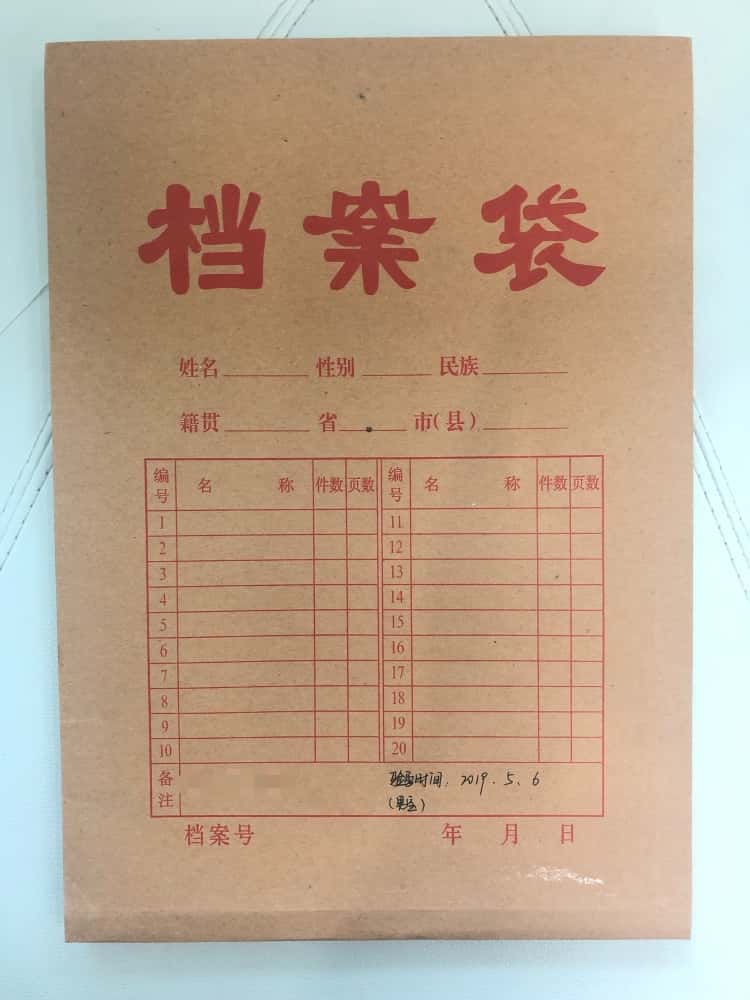 档案袋
姓名 性别 民族
籍贯 省 市(县)
编号 名称 件数 页数 编号 名称 件数 页数
1 11
2 12
3 13
4 14
5 15
6 16
7 17
8 18
9 19
10 20
备注 时间: 2019.5.6
档案号 年 月 日